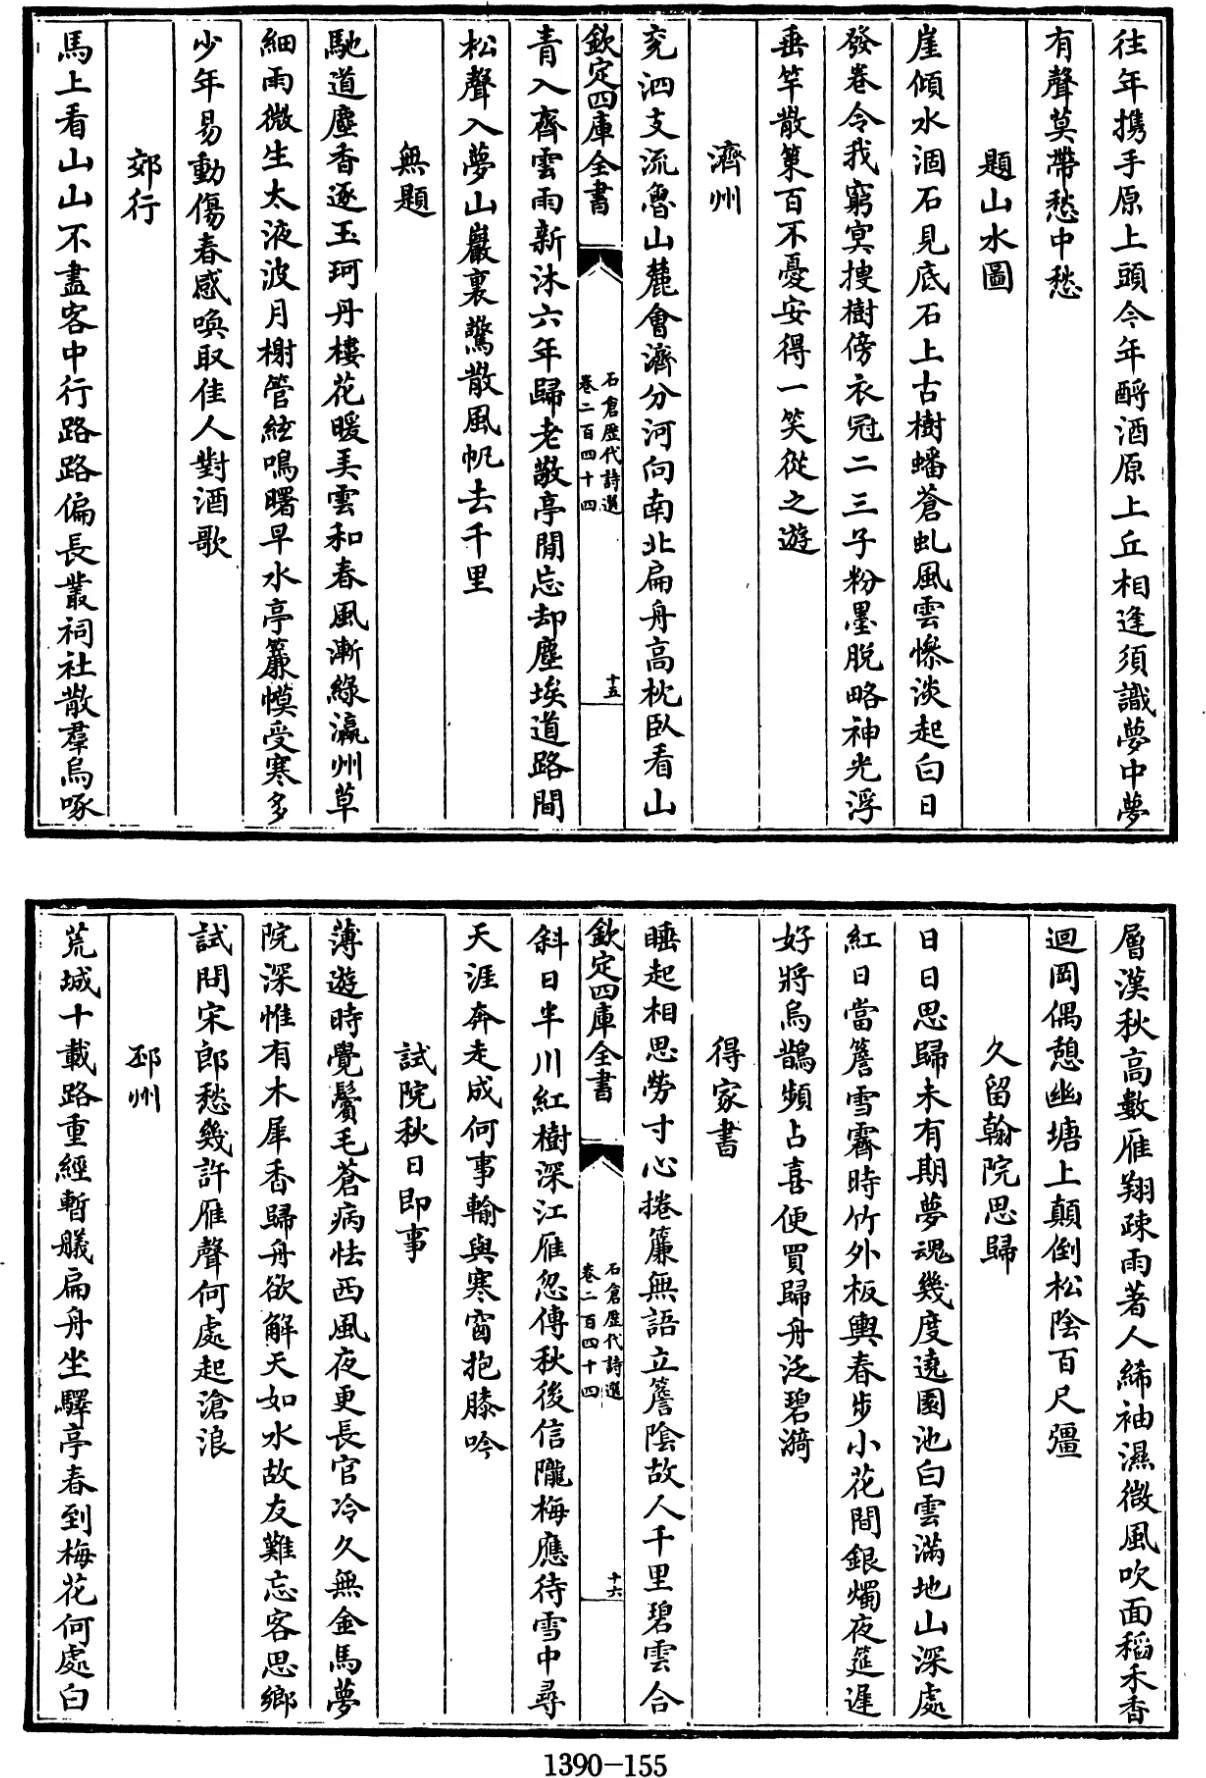 往年攜手原上頭今年酹酒原上丘相逢須識夢中夢
有聲莫帶愁中愁
題山水圖
崖傾水涸石見底石上古樹蟠蒼虬風雲慘淡起白日
發卷令我窮冥搜樹傍衣冠二三子粉墨脫略神光浮
垂竿散策百不憂安得一笑從之遊
濟州
兖泗支流魯山麓會濟分河向南北扁舟高枕臥看山
欽定四庫全書
石倉歷代詩選
卷二百四十四
十五
青入齊雲雨新沐六年歸老敬亭閒忘却塵埃道路間
松聲入夢山巖裏驚散風帆去千里
無題
馳道塵香逐玉珂丹樓花暖美雲和春風漸綠瀛州草
細雨微生太液波月榭管絃鳴曙早水亭簾幙受寒多
少年易動傷春感喚取佳人對酒歌
郊行
馬上看山山不盡客中行路路偏長叢祠社散羣烏啄
層漢秋高數雁翔疎雨著人絺袖濕微風吹面稻禾香
迴岡偶憩幽塘上顛倒松陰百尺殭
久留翰院思歸
日日思歸未有期夢魂幾度遶園池白雲滿地山深處
紅日當簷雪霽時竹外板輿春步小花間銀燭夜筵遲
好將烏鵲頻占喜便買歸舟泛碧漪
得家書
睡起相思勞寸心捲簾無語立簷陰故人千里碧雲合
欽定四庫全書
石倉歷代詩選
卷二百四十四
十六
斜日半川紅樹深江雁忽傳秋後信隴梅應待雪中尋
天涯奔走成何事輸與寒窗抱膝吟
試院秋日即事
薄遊時覺鬢毛蒼病怯西風夜更長官冷久無金馬夢
院深惟有木犀香歸舟欲解天如水故友難忘客思鄉
試問宋郎愁幾許雁聲何處起滄浪
邳州
荒城十載路重經暫艤扁舟坐驛亭春到梅花何處白
1390-155